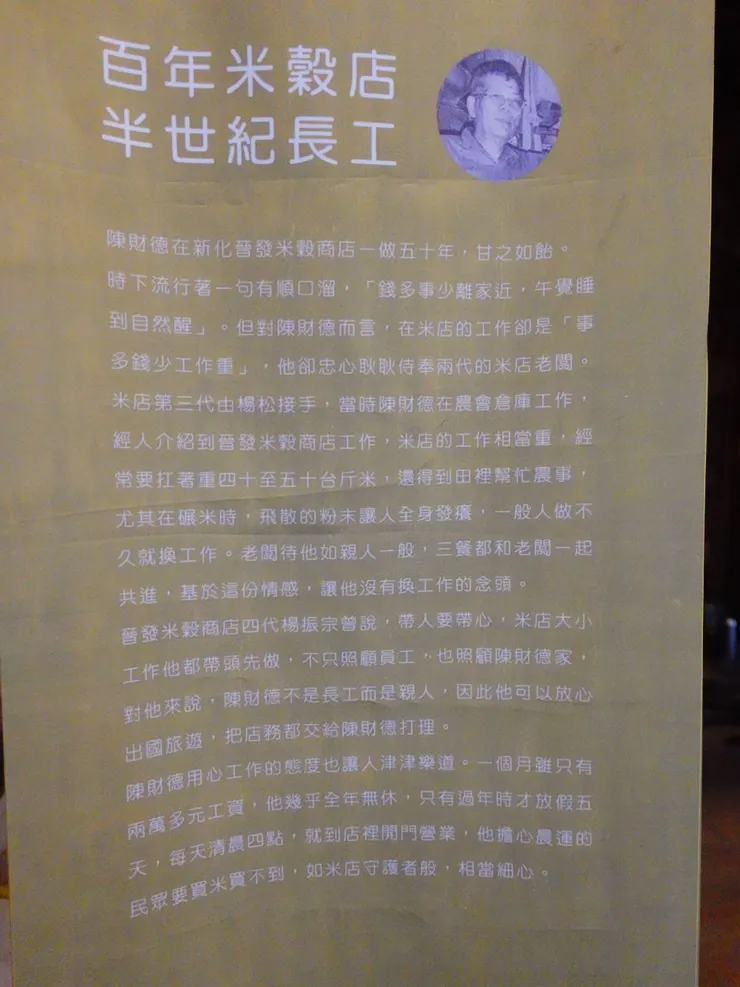 百年米穀店
半世紀長工
陳財德在新化晉發米穀商店一做五十年，甘之如飴。
時下流行著一句有順口溜，「錢多事少離家近，午覺睡
到自然醒」。但對陳財德而言，在米店的工作卻是「事
多錢少工作重」，他卻忠心耿耿侍奉兩代的米店老闆。
米店第三代由楊松接手，當時陳財德在農會倉庫工作，
經人介紹到晉發米穀商店工作，米店的工作相當重，經
常要扛著重四十至五十台斤米，還得到田裡幫忙農事，
尤其在碾米時，飛散的粉末讓人全身發癢，一般人做不
久就換工作。老闆待他如親人一般，三餐都和老闆一起
共進，基於這份情感，讓他沒有換工作的念頭。
晉發米穀商店四代楊振宗普說，帶人要帶心，米店大小
工作他都帶頭先做，不只照顧員工，也照顧陳財德家，
對他來說，陳財德不是長工而是親人，因此他可以放心
出國旅遊，把店務都交給陳財德打理。
陳財德用心工作的態度也讓人津津樂道。一個月雖只有
兩萬多元工資，他幾乎全年無休，只有過年時才放假五
天，每天清晨四點，就到店裡開門營業，他擔心晨運的
民眾要買米買不到，如米店守護者般，相當細心。